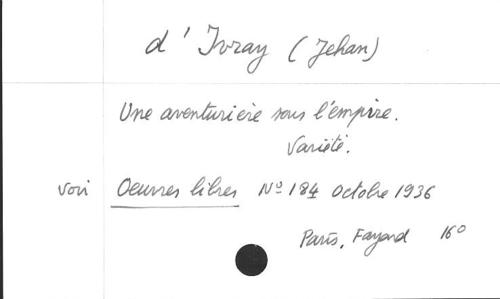 d'Ivray (Jehan)
Une aventurière sous l'empire.
Variété.
Voir Oeuvres libres Nº 184 Octobre 1936
Paris, Fayard 16º